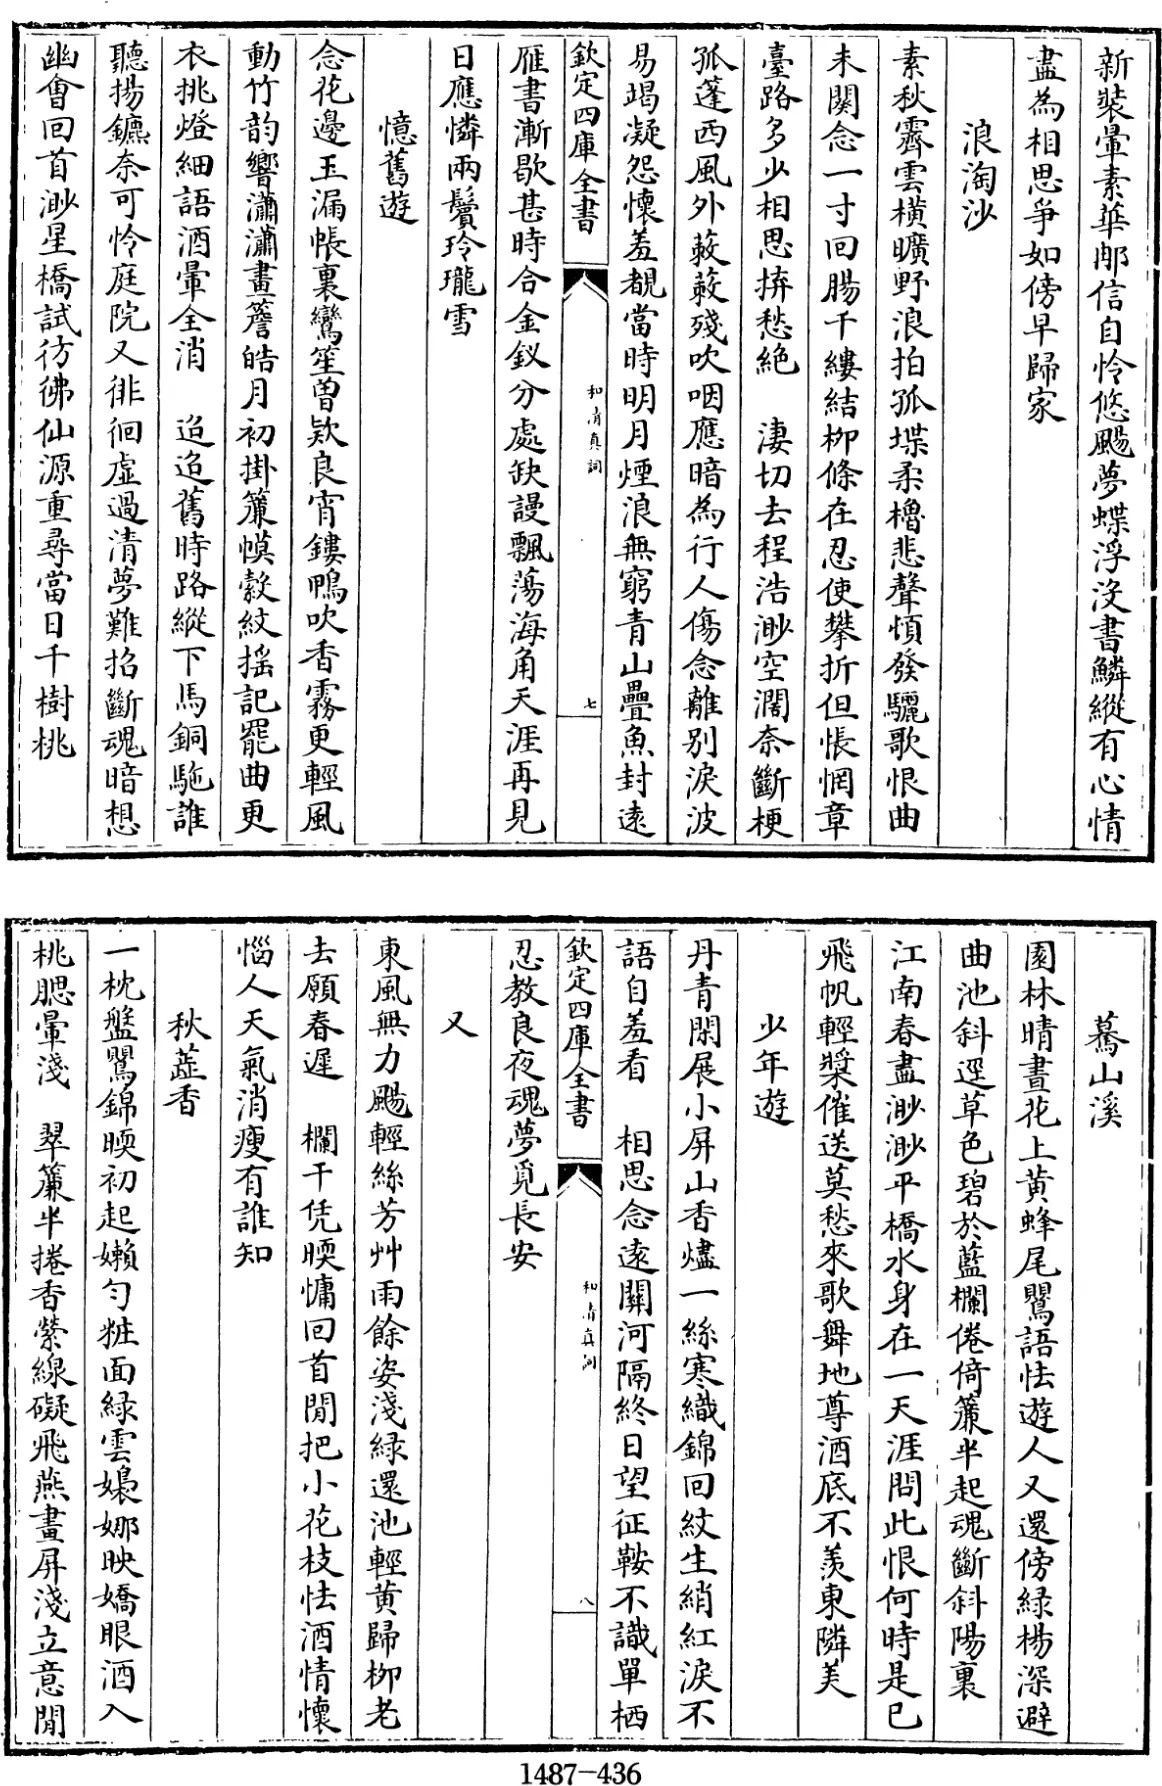 新裝暈素華那信自怜悠颺夢蝶浮沒書鱗縱有心情
盡為相思爭如傍早歸家
浪淘沙
素秋霽雲橫曠野浪拍孤堞柔櫓悲聲頃發驪歌恨曲
未闋念一寸回腸千縷結柳條在忍使攀折但悵惘章
臺路多少相思拚愁絶　淒切去程浩渺空濶奈斷梗
孤蓬西風外蔌蔌殘吹咽應暗為行人傷念離別淚波
易竭凝怨懷羞覩當時明月煙浪無窮青山疊魚封遠
欽定四庫全書
和清真詞
七
雁書漸歇甚時合金釵分處缺謾飄蕩海角天涯再見
日應憐兩鬢玲瓏雪
憶舊遊
念花邊玉漏帳裏鸞笙曽欵良宵鏤鴨吹香霧更輕風
動竹韵響瀟瀟畫簷皓月初掛簾幙縠紋揺記罷曲更
衣挑燈細語酒暈全消　迢迢舊時路縱下馬銅駞誰
聽揚鑣奈可怜庭院又徘徊虛過清夢難招斷魂暗想
幽會回首渺星橋試彷彿仙源重尋當日千樹桃
驀山溪
園林晴晝花上黄蜂尾鸎語怯遊人又還傍緑楊深避
曲池斜逕草色碧於藍欄倦倚簾半起魂斷斜陽裏
江南春盡渺渺平橋水身在一天涯問此恨何時是已
飛帆輕槳催送莫愁來歌舞地尊酒底不羡東隣美
少年遊
丹青閑展小屏山香燼一絲寒織錦回紋生綃紅淚不
語自羞看　相思念遠關河隔終日望征鞍不識單栖
欽定四庫全書
和清真詞
八
忍教良夜魂夢覓長安
又
東風無力颺輕絲芳艸雨餘姿淺緑還池輕黄歸柳老
去願春遲　欄干凭暎慵回首閒把小花枝怯酒情懷
惱人天氣消瘦有誰知
秋蘂香
一枕盤鸎錦暎初起嬾勻粧面緑雲嬝娜映嬌眼酒入
桃腮暈淺　翠簾半捲香縈線礙飛燕畫屏淺立意閒
1487-436